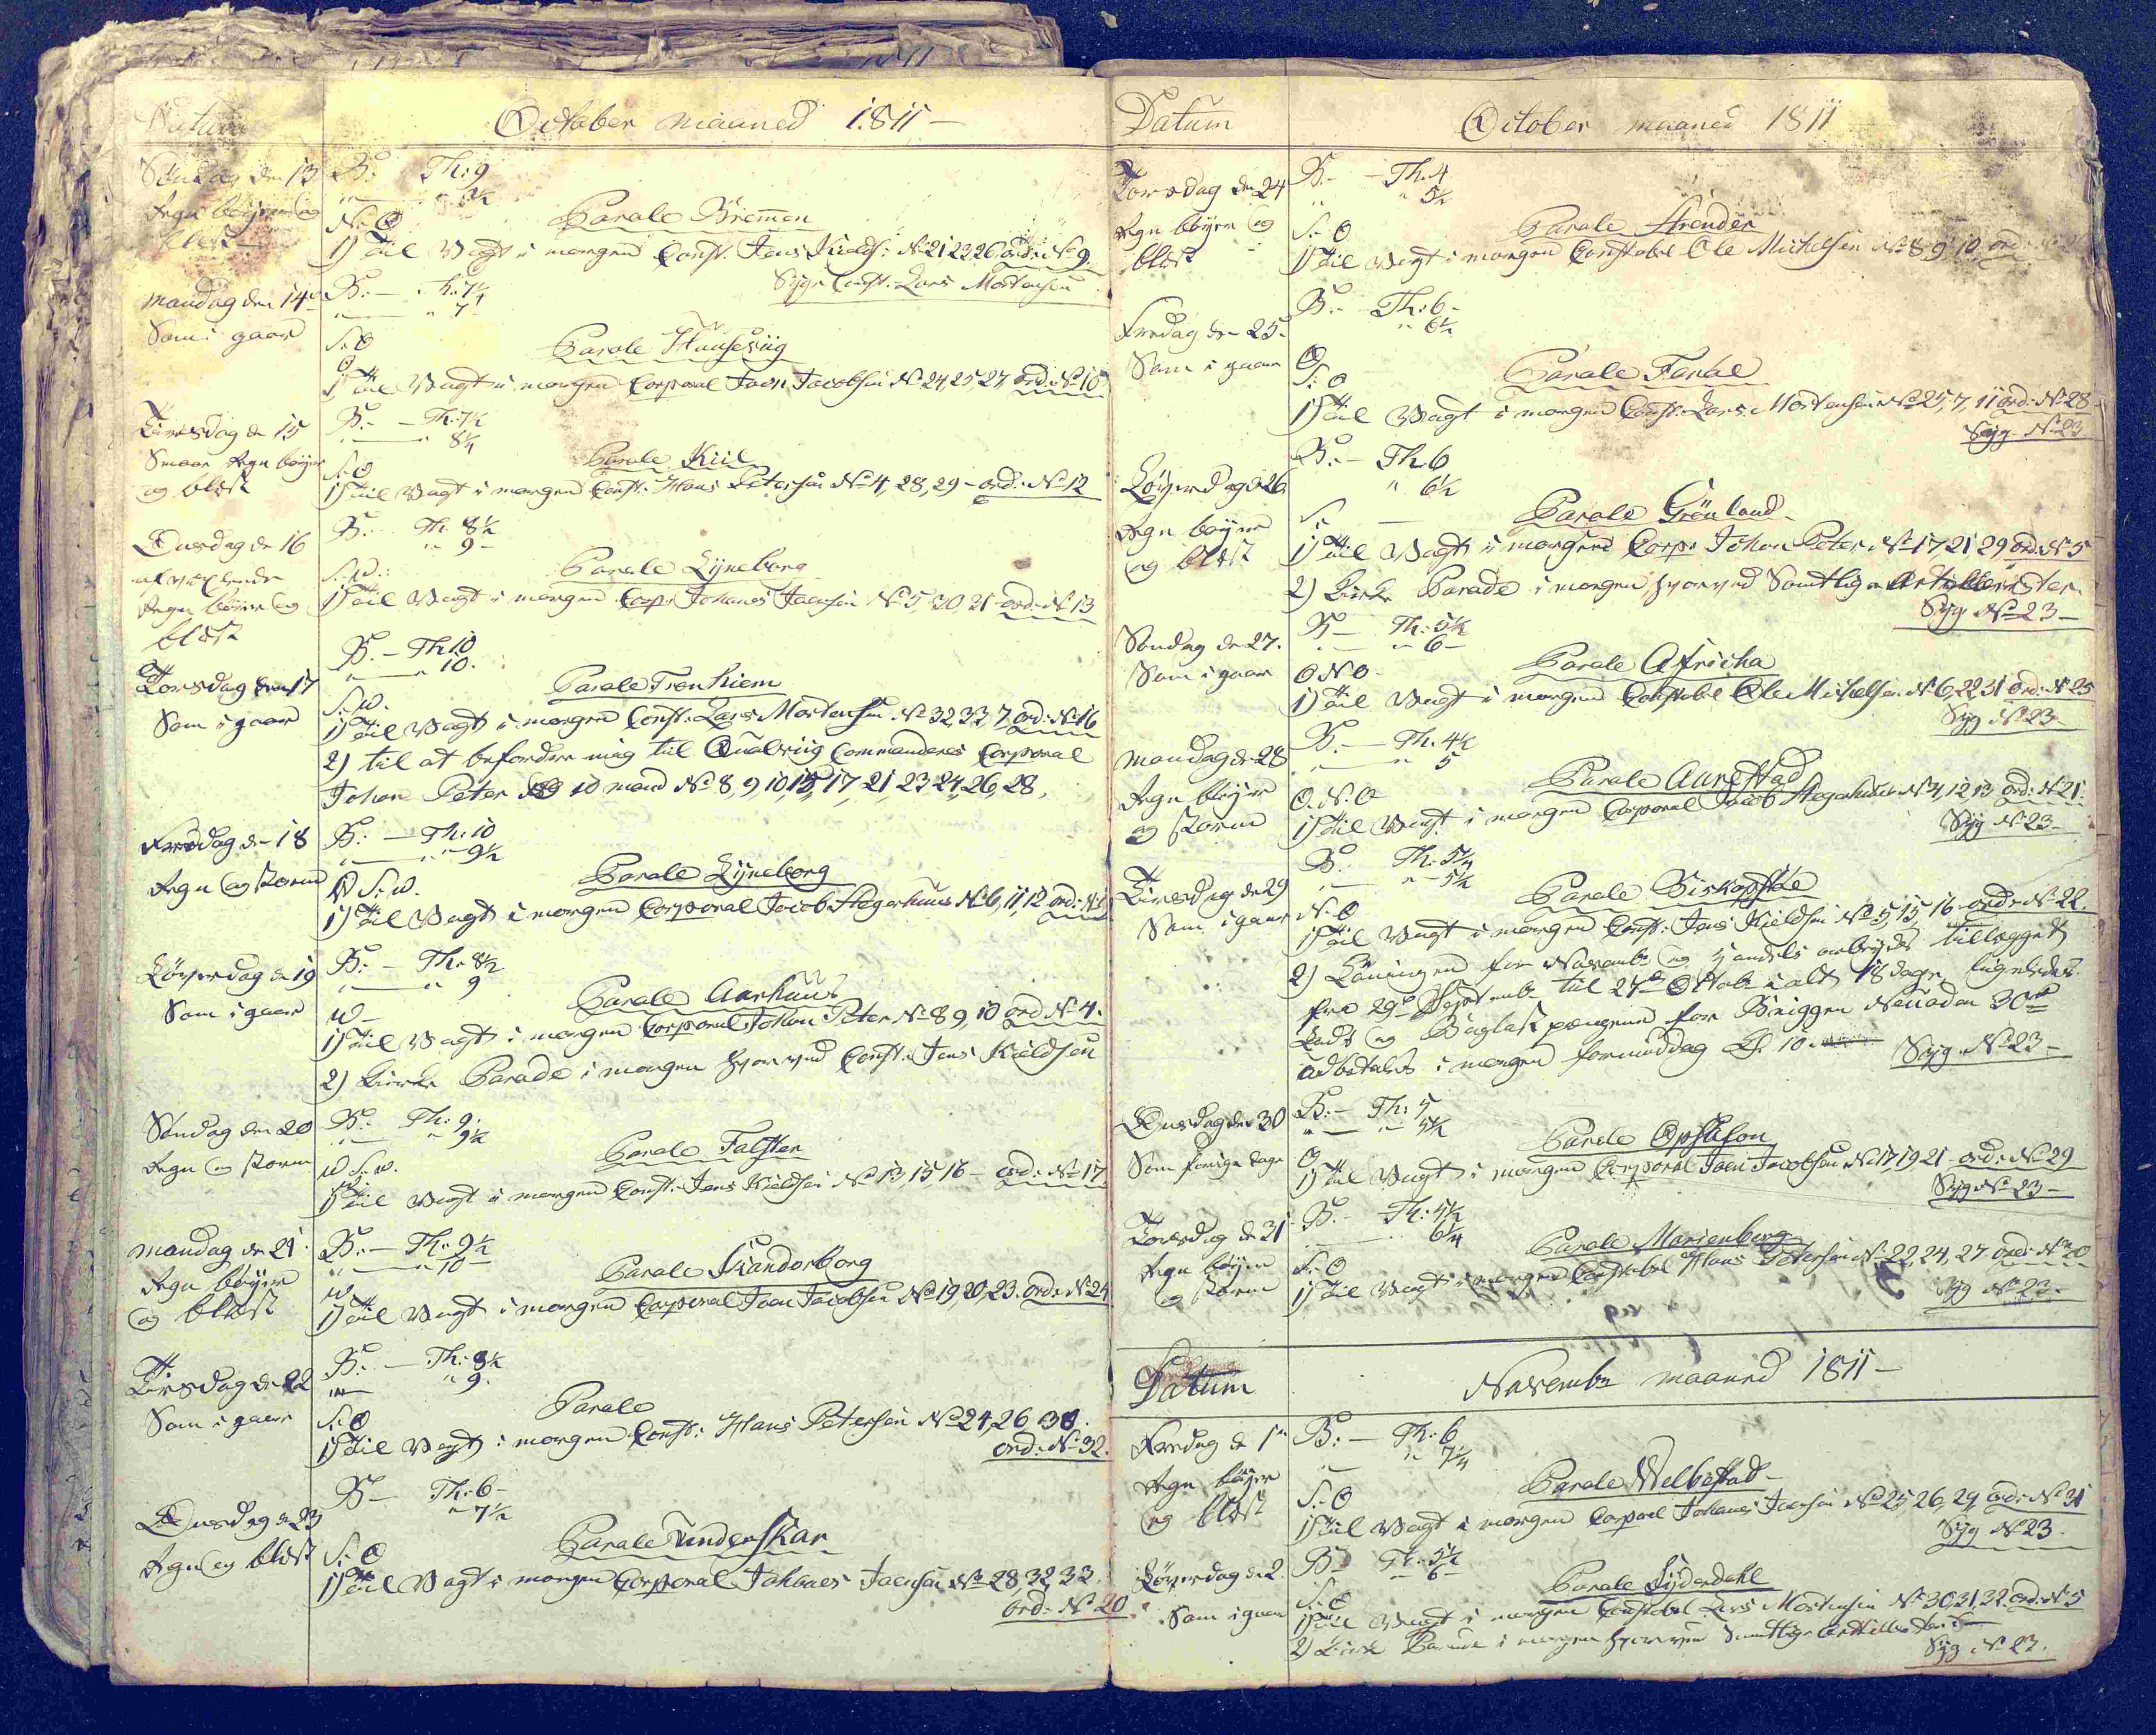 Datum
October maaned 1811 -
Søndag den 13
Regn böyer og
blæst
B: Th: 9
" 8½
N. O
Parole Bremen
1) Til Vagt i morgen Const. Jens Kields: No 21 22 26 ord: No 9.
Syge Const: Lars Mortensen
Mandag den 14
Som i gaar
B. - Th: 7½
" 7
S. O
Parole Huseviig
1) Til Vagt i morgen Corporal Joen Jacobsen No 24 25 27 ord: No 10
Tiresdag d 15
Smaae Regn böyer
og blæst
B. - Th: 7½
" 8¼
S. O
Parole Kiil
1) Til Vagt i morgen Const. Hans Petersen No 4, 28, 29 - ord: No 12
Onsdag d 16
afvexlende
Regn böyer og
blæst
B. Th 8½
" 9 -
S. W.
Parole Lyneborg
1) Til Vagt i morgen Corp: Johanes Joensen No 5 20, 21 - ord: No 13
Torsdag den 17
Som i gaar
B. - Th 10
" 10.
S. W.
Parole Tronhiem
1) Til Vagt i morgen Const. Lars Mortensen No 32, 33 7 ord: No 16
2) til at befordre mig til Qualviig Commanderes Corporal
Johan Peter 10 mand No 8, 9, 10, 15, 17 21 23 24, 26, 28,
Fredag d 18
Regn og storm
B: - Th: 10
" 9½
S. W.
Parole Lyneborg
1) Til Vagt i morgen Corporal Jacob Hegerhuus No 6, 11, 12 ord: No
Löverdag d 19
Som i gaar
B: - Th: 8½
" 9
W -
Parole Aarhuus
1) Til Vagt i morgen Corporal Johan Peter No 8 9, 10 ord No 4.
2) Kirke Parade i morgen hvorved Const: Jens Kieldsen
Søndag den 20
Regn og storm
B: Th: 9.
" 9½
W. S. W.
Parole Falster
1) Til Vagt i morgen Const: Jens Kieldsen No 13, 15 16 - ord: No 17
Mandag d 21
Regn böyer
og blæst
B: - Th: 9½
" 10 -
W
Parole Skanderborg
1) Til Vagt i morgen Corporal Joen Jacobsen No 19, 20, 23. ord: No 24
Tiresdag d 22
Som i gaar
B: - Th: 8½
" 9.
S. O
Parole
1) Til Vagt i morgen Const: Hans Petersen No 24, 26 30.
ord: No 32.
Onsdag d 23
Regn og blæst
B - Th: 6 -
" 7½
S. O
Parole Funderskar
1) Til Vagt i morgen Corporal Johanes Joensen No 28, 32 33.
ord: No 20
Datum
October maaned 1811
Torsdag den 24
Regn böyer og
blæst
B. - Th. 4
" 5½
S. O
Parole Arender
1) Til Vagt i morgen Constabel Ole Michelsen No 8 9 10 ord:
Fredag den 25.
Som i gaar
B. - Th: 6 -
" 6½
S: O
Parole Farøe
1) Til Vagt i morgen Const: Lars Mortensen No 25, 7, 11 ord: No 28
Syg No 23
Löverdag d 26
Regn böyer
og blæst
B. - Th. 6
" 6½
Parole Grønland
1) Til Vagt i morgen Corp: Johan Peter No 17 21 29 ord: No 5
2) Kirke Parade i morgen hvorved Samtlige Artillerister.
Syg No 23 -
Søndag d 27.
Som i gaar
B - Th: 5½
" 6 -
O N O
Parole Africha
1) Til Vagt i morgen Constabel Ole Michelsen No 6, 22 31 ord: No 25
Syg No 23
Mandag d 28
Regn böyer
og storm
B. - Th. 4½
" 5
O. N. O
Parole Aunestad
1) Til Vagt i morgen Corporal Jacob Hegerhuus No 4, 12, 13 ord: No 21.
Syg No 23 -
Tiresdag d 29
Som i gaar
B. Th: 5¼
" 5½
N. O
Parole Biskopstøe
1) Til Vagt i morgen Const: Jens Kieldsen No 5, 15 16 - ord: No 22.
2) Løningen for November og tillægget
fra 29de Septemb: til 27de Octob: i alt dage ligeledes
pengene for Briggen
udbetales i morgen formiddag Kl. 10.
Syg No 23 -
Onsdag den 30
Som forige dage
B: - Th: 5
" 5½
O
Parole Opslason
1) Til Vagt i morgen Corporal Joen Jacobsen No 17, 19 21 - ord: No 29
Syg No 23 -
Torsdag d 31
Regn böyer
og storm
B. - Th: 5½
" 6¼
S. O
Parole Marienborg
1) Til Vagt i morgen Constabel Hans Petersen No 22, 24, 27 ord: No 20
Syg No 23 -
Datum
Novemb: maaned 1811 -
Fredag d 1te
Regn böyer
og blæst
B: - Th: 6
" 7¼
S. O
Parole Welbestad -
1) Til Vagt i morgen Corporal Johanes Joensen No 25, 26, 29 ord: No 31
Syg No 23 -
Löverdag d 2
Som i gaar
B - Th: 5½
" 6 -
S. O
Parole Syderdahl
1) Til Vagt i morgen Constabel Lars Mortensen No 30, 31, 32. ord: No 5
2) Kirke Parade i morgen hvorved Samtlige Artillerister
Syg No 23.